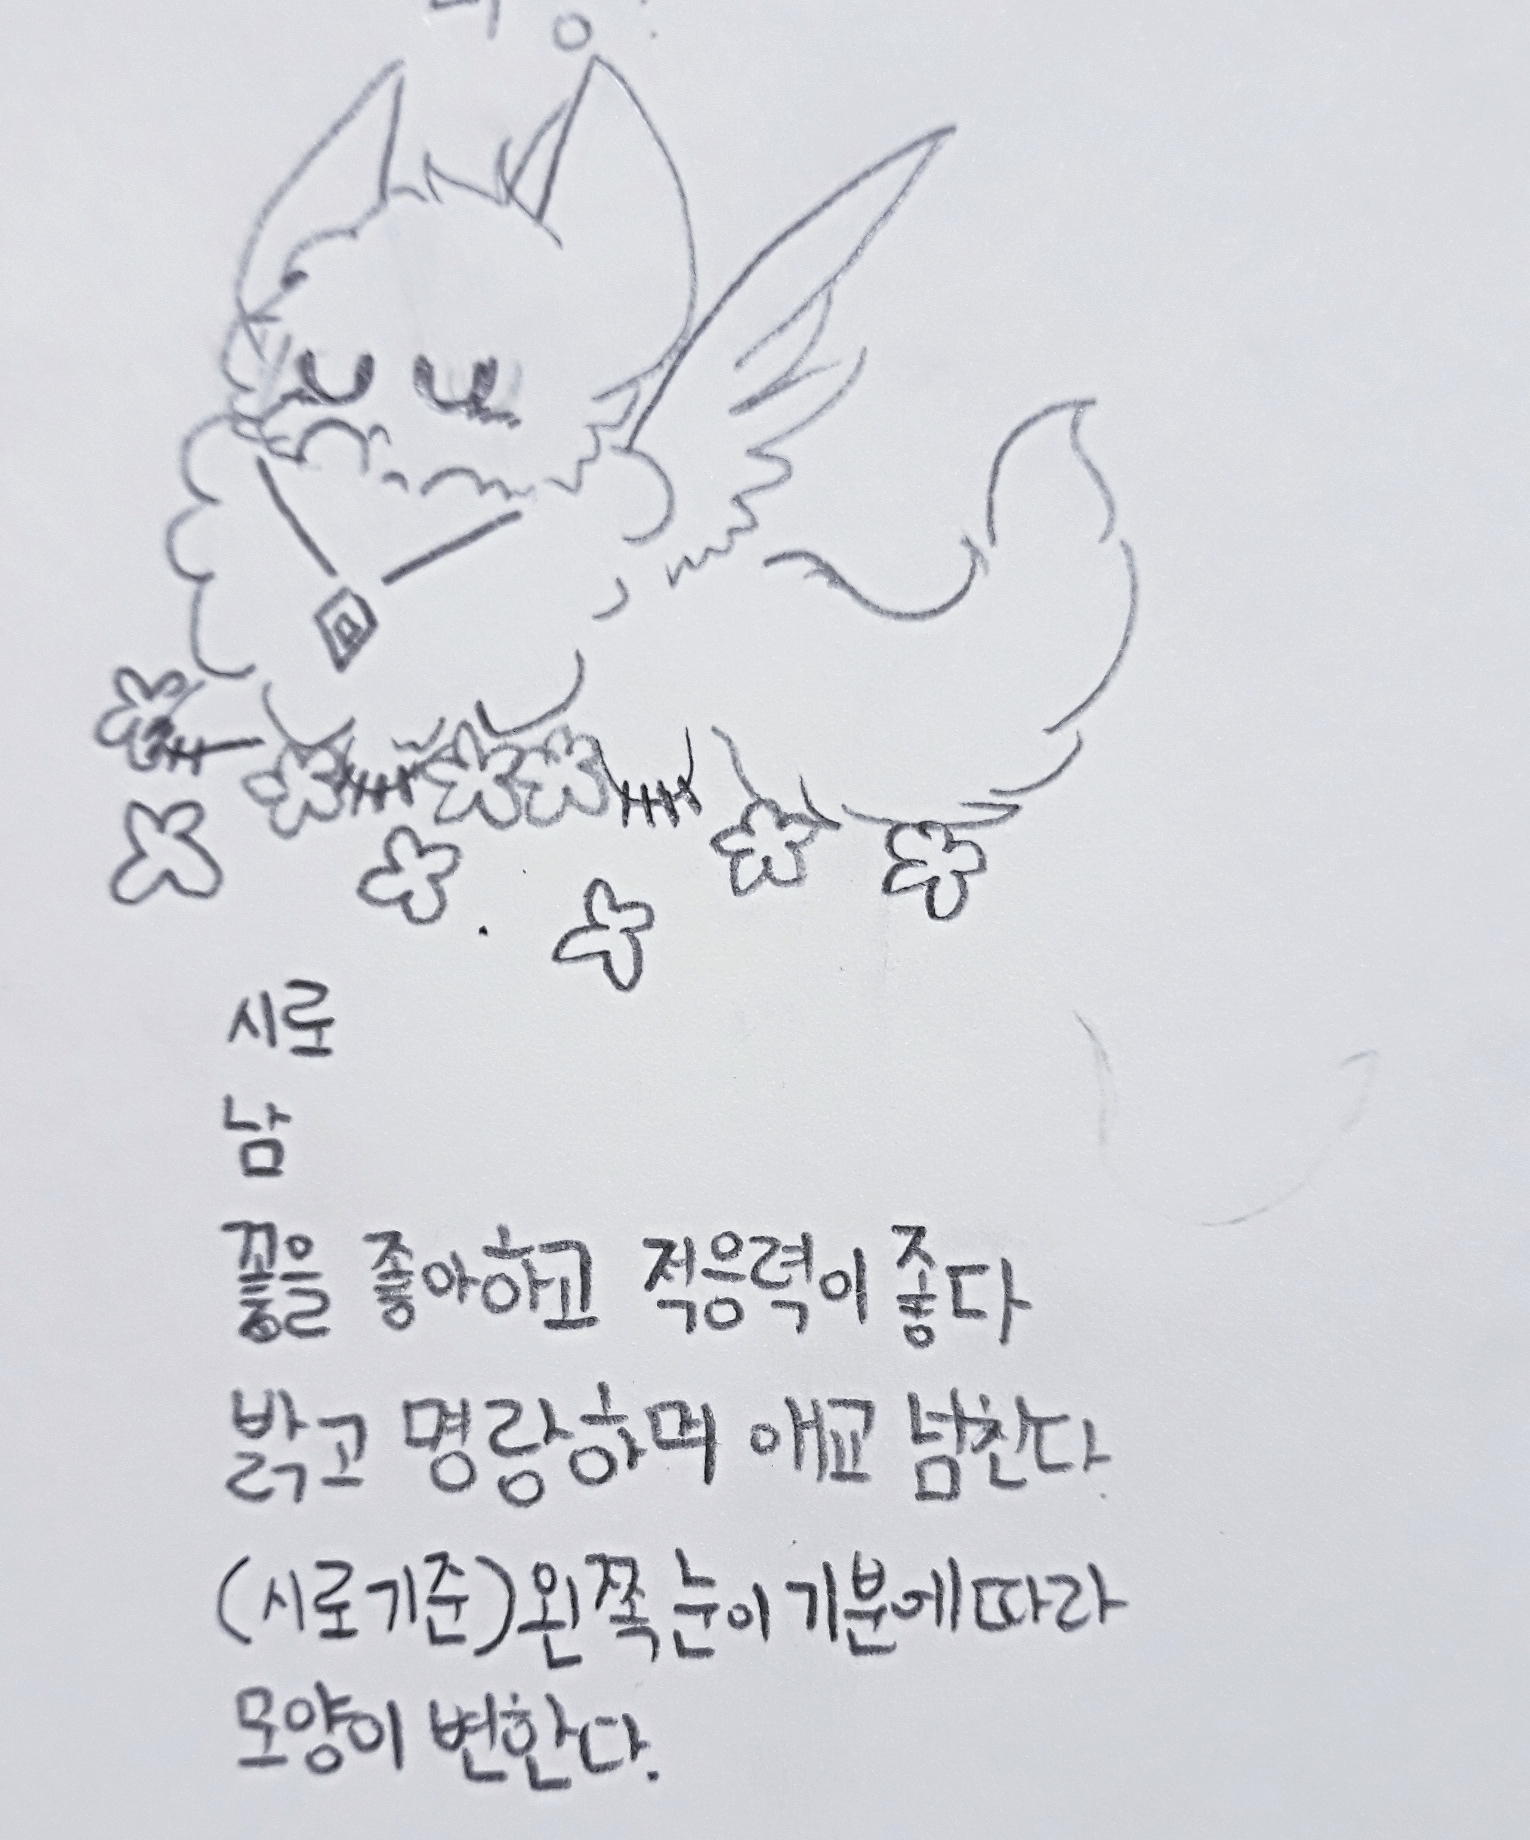 시로
남
꽃을 좋아하고 적응력이 좋다
밝고 명랑하며 애교 넘친다.
(시로기준)왼쪽 눈이 기분에따라
모양이 변한다.